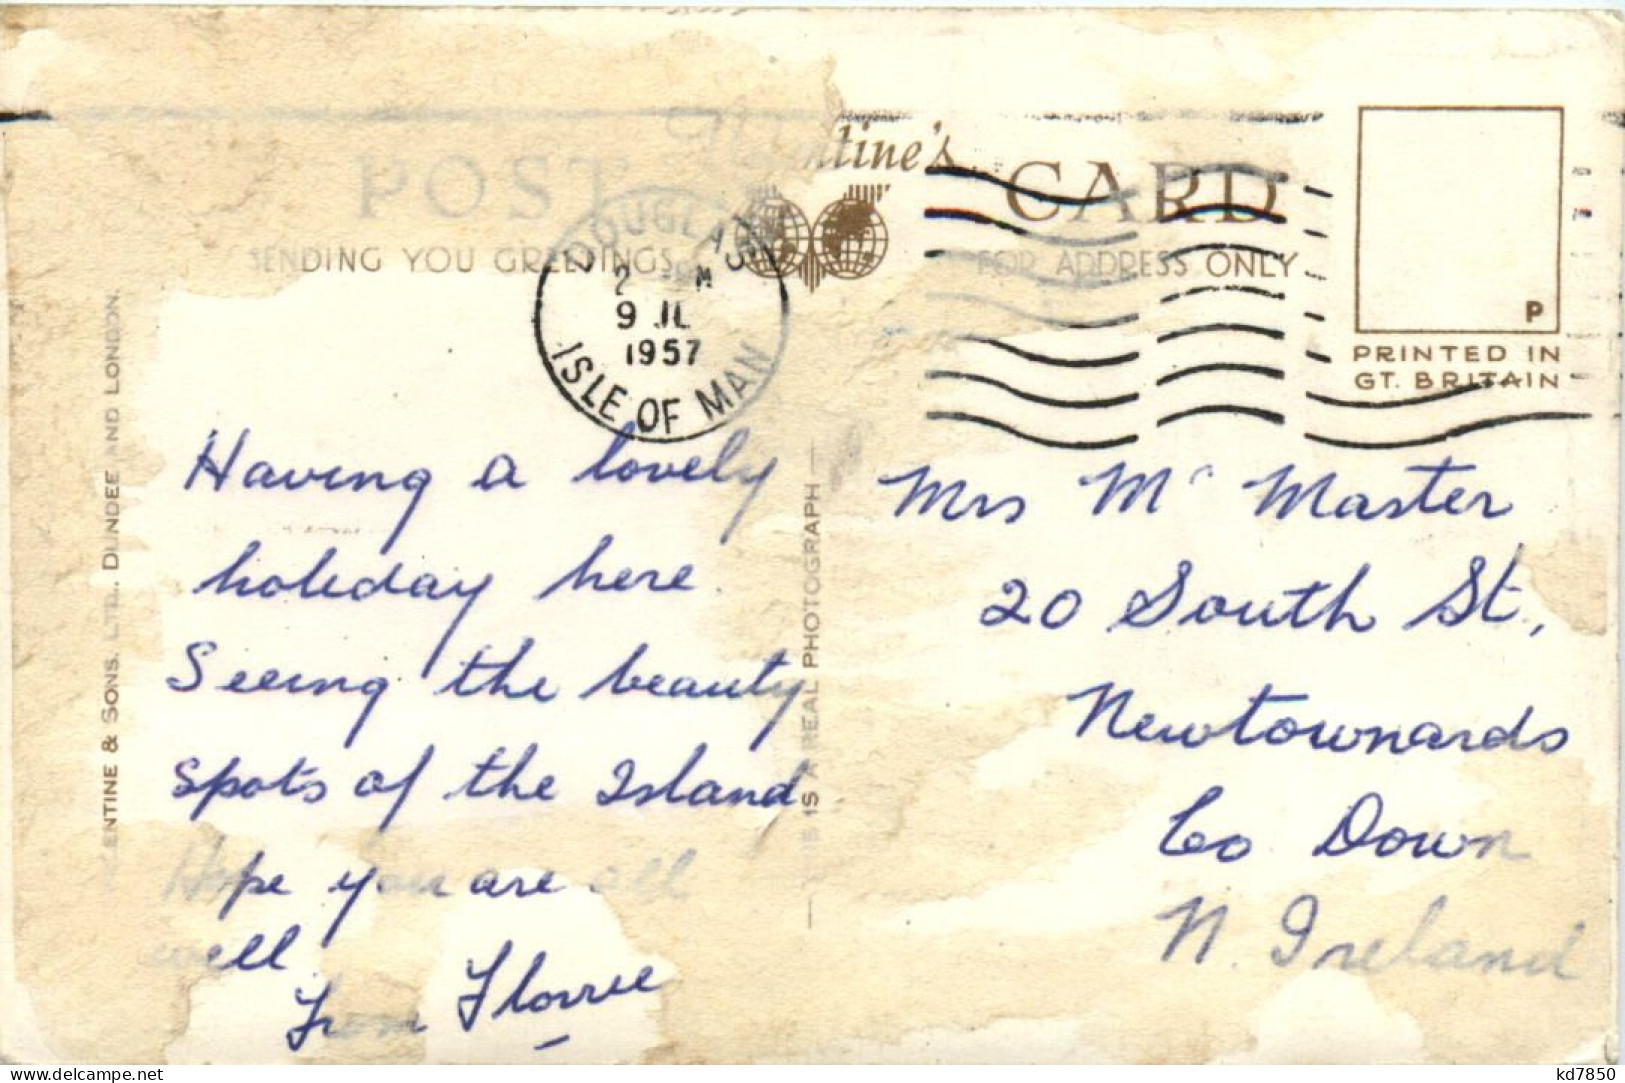 POST Valentine's CARD
SENDING YOU GREETINGS
FOR ADDRESS ONLY
P
PRINTED IN
GT. BRITAIN
DOUGLAS
9 JL
1957
ISLE OF MAN
ENTINE & SONS. LTD., DUNDEE AND LONDON.
IS A REAL PHOTOGRAPH
Having a lovely
holiday here.
Seeing the beauty
spots of the Island
Hope you are all
well.
From Florrie
Mrs Mc Master
20 South St,
Newtownards
Co Down
N. Ireland
www.delcampe.net
kd7850